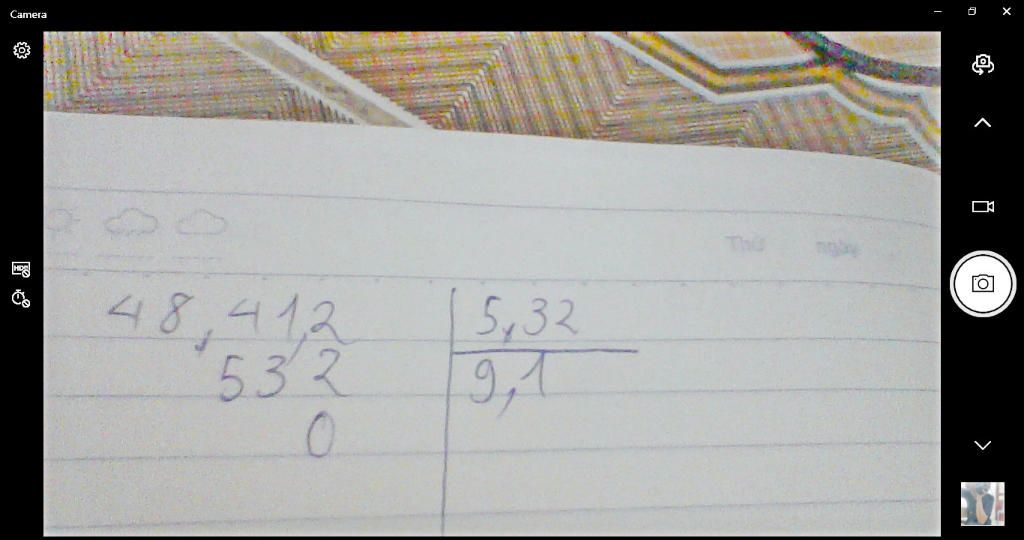 Camera
HDR
Thứ ngày
48,41,2 5,32
532 9,1
0